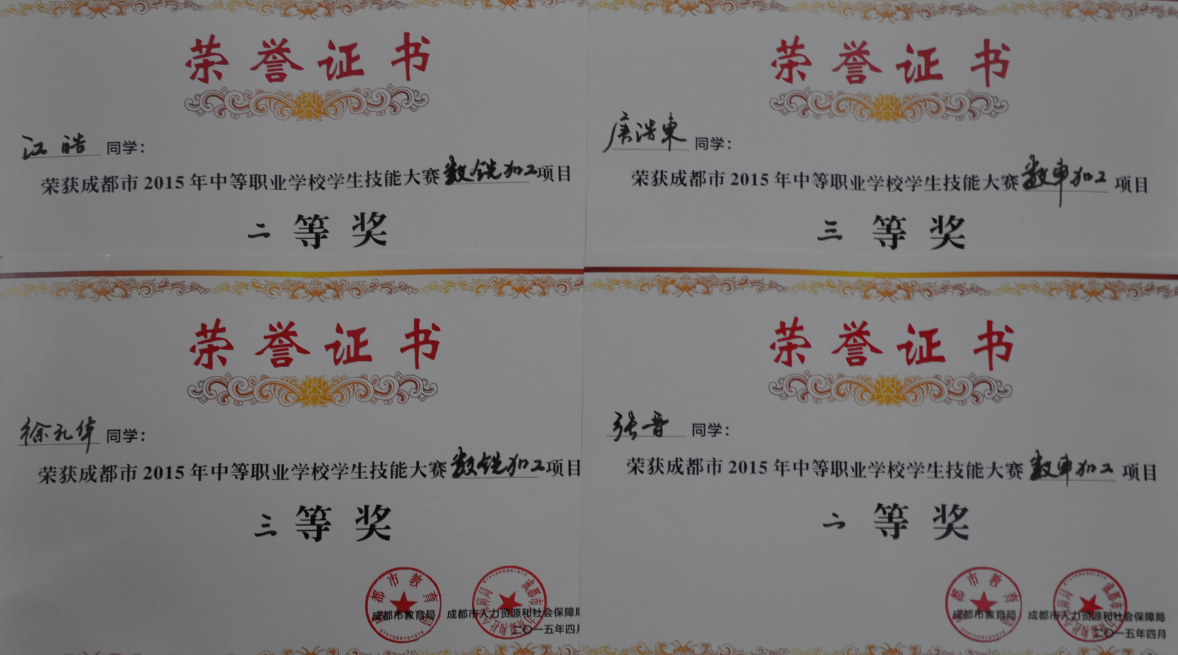 荣誉证书
江皓 同学：
荣获成都市 2015 年中等职业学校学生技能大赛 数铣加工 项目
二等奖
荣誉证书
唐浩东 同学：
荣获成都市 2015 年中等职业学校学生技能大赛 数車加工 项目
三等奖
荣誉证书
徐礼华 同学：
荣获成都市 2015 年中等职业学校学生技能大赛 数铣加工 项目
三等奖
成都市教育局 成都市人力资源和社会保障局
二〇一五年四月
荣誉证书
张晋 同学：
荣获成都市 2015 年中等职业学校学生技能大赛 数車加工 项目
二等奖
成都市教育局 成都市人力资源和社会保障局
二〇一五年四月